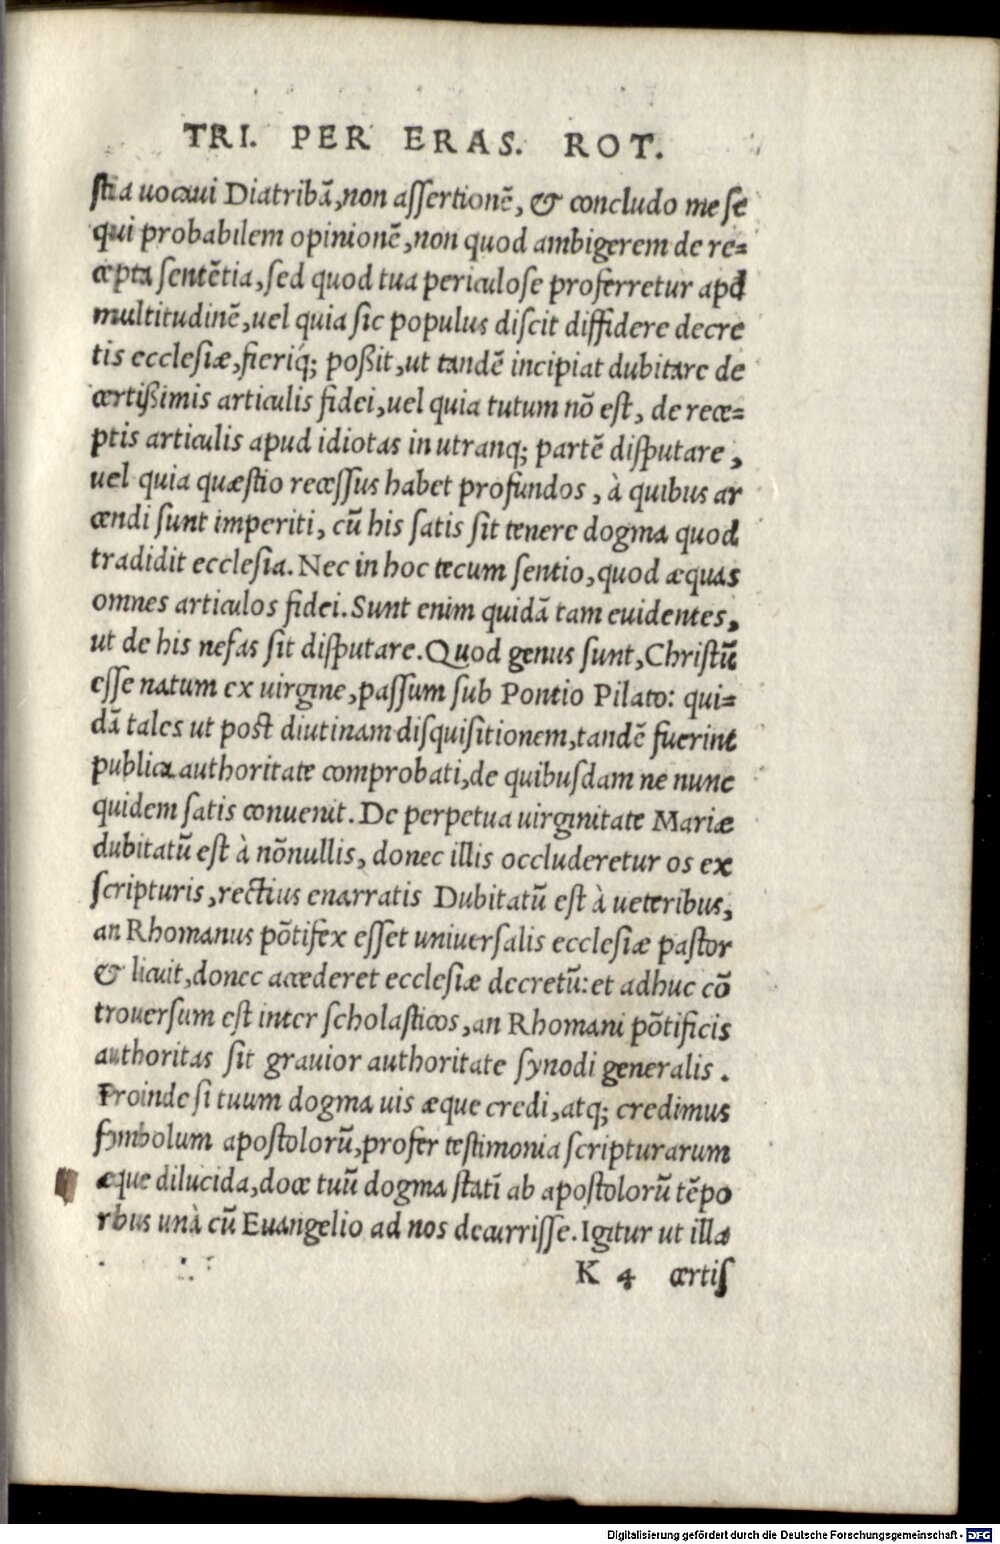 TRI. PER ERAS. ROT.
stia uocaui Diatribā, non assertionē, & concludo me se
qui probabilem opinionē, non quod ambigerem de re=
cepta sentētia, sed quod tua periculose proferretur apd
multitudinē, uel quia sic populus discit diffidere decre
tis ecclesiæ, fieriq́; poßit, ut tandē incipiat dubitare de
certißimis articulis fidei, uel quia tutum nō est, de rece=
ptis articulis apud idiotas in utranq; partē disputare,
uel quia quæstio recessus habet profundos, à quibus ar
cendi sunt imperiti, cū his satis sit tenere dogma quod
tradidit ecclesia. Nec in hoc tecum sentio, quod æquas
omnes articulos fidei. Sunt enim quidā tam euidentes,
ut de his nefas sit disputare. Quod genus sunt, Christū
esse natum ex uirgine, passum sub Pontio Pilato: qui=
dā tales ut post diutinam disquisitionem, tandē fuerint
publica authoritate comprobati, de quibusdam ne nunc
quidem satis conuenit. De perpetua uirginitate Mariæ
dubitatū est à nōnullis, donec illis occluderetur os ex
scripturis, rectius enarratis Dubitatū est à ueteribus,
an Rhomanus pōtifex esset uniuersalis ecclesiæ pastor
& licuit, donec accederet ecclesiæ decretū: et adhuc cō
trouersum est inter scholasticos, an Rhomani pōtificis
authoritas sit grauior authoritate synodi generalis.
Proinde si tuum dogma uis æque credi, atq; credimus
symbolum apostolorū, profer testimonia scripturarum
æque dilucida, doce tuū dogma statī ab apostolorū tēpo
rbus unà cū Euangelio ad nos decurrisse. Igitur ut illa
K 4 certis
Digitalisierung gefördert durch die Deutsche Forschungsgemeinschaft - DFG